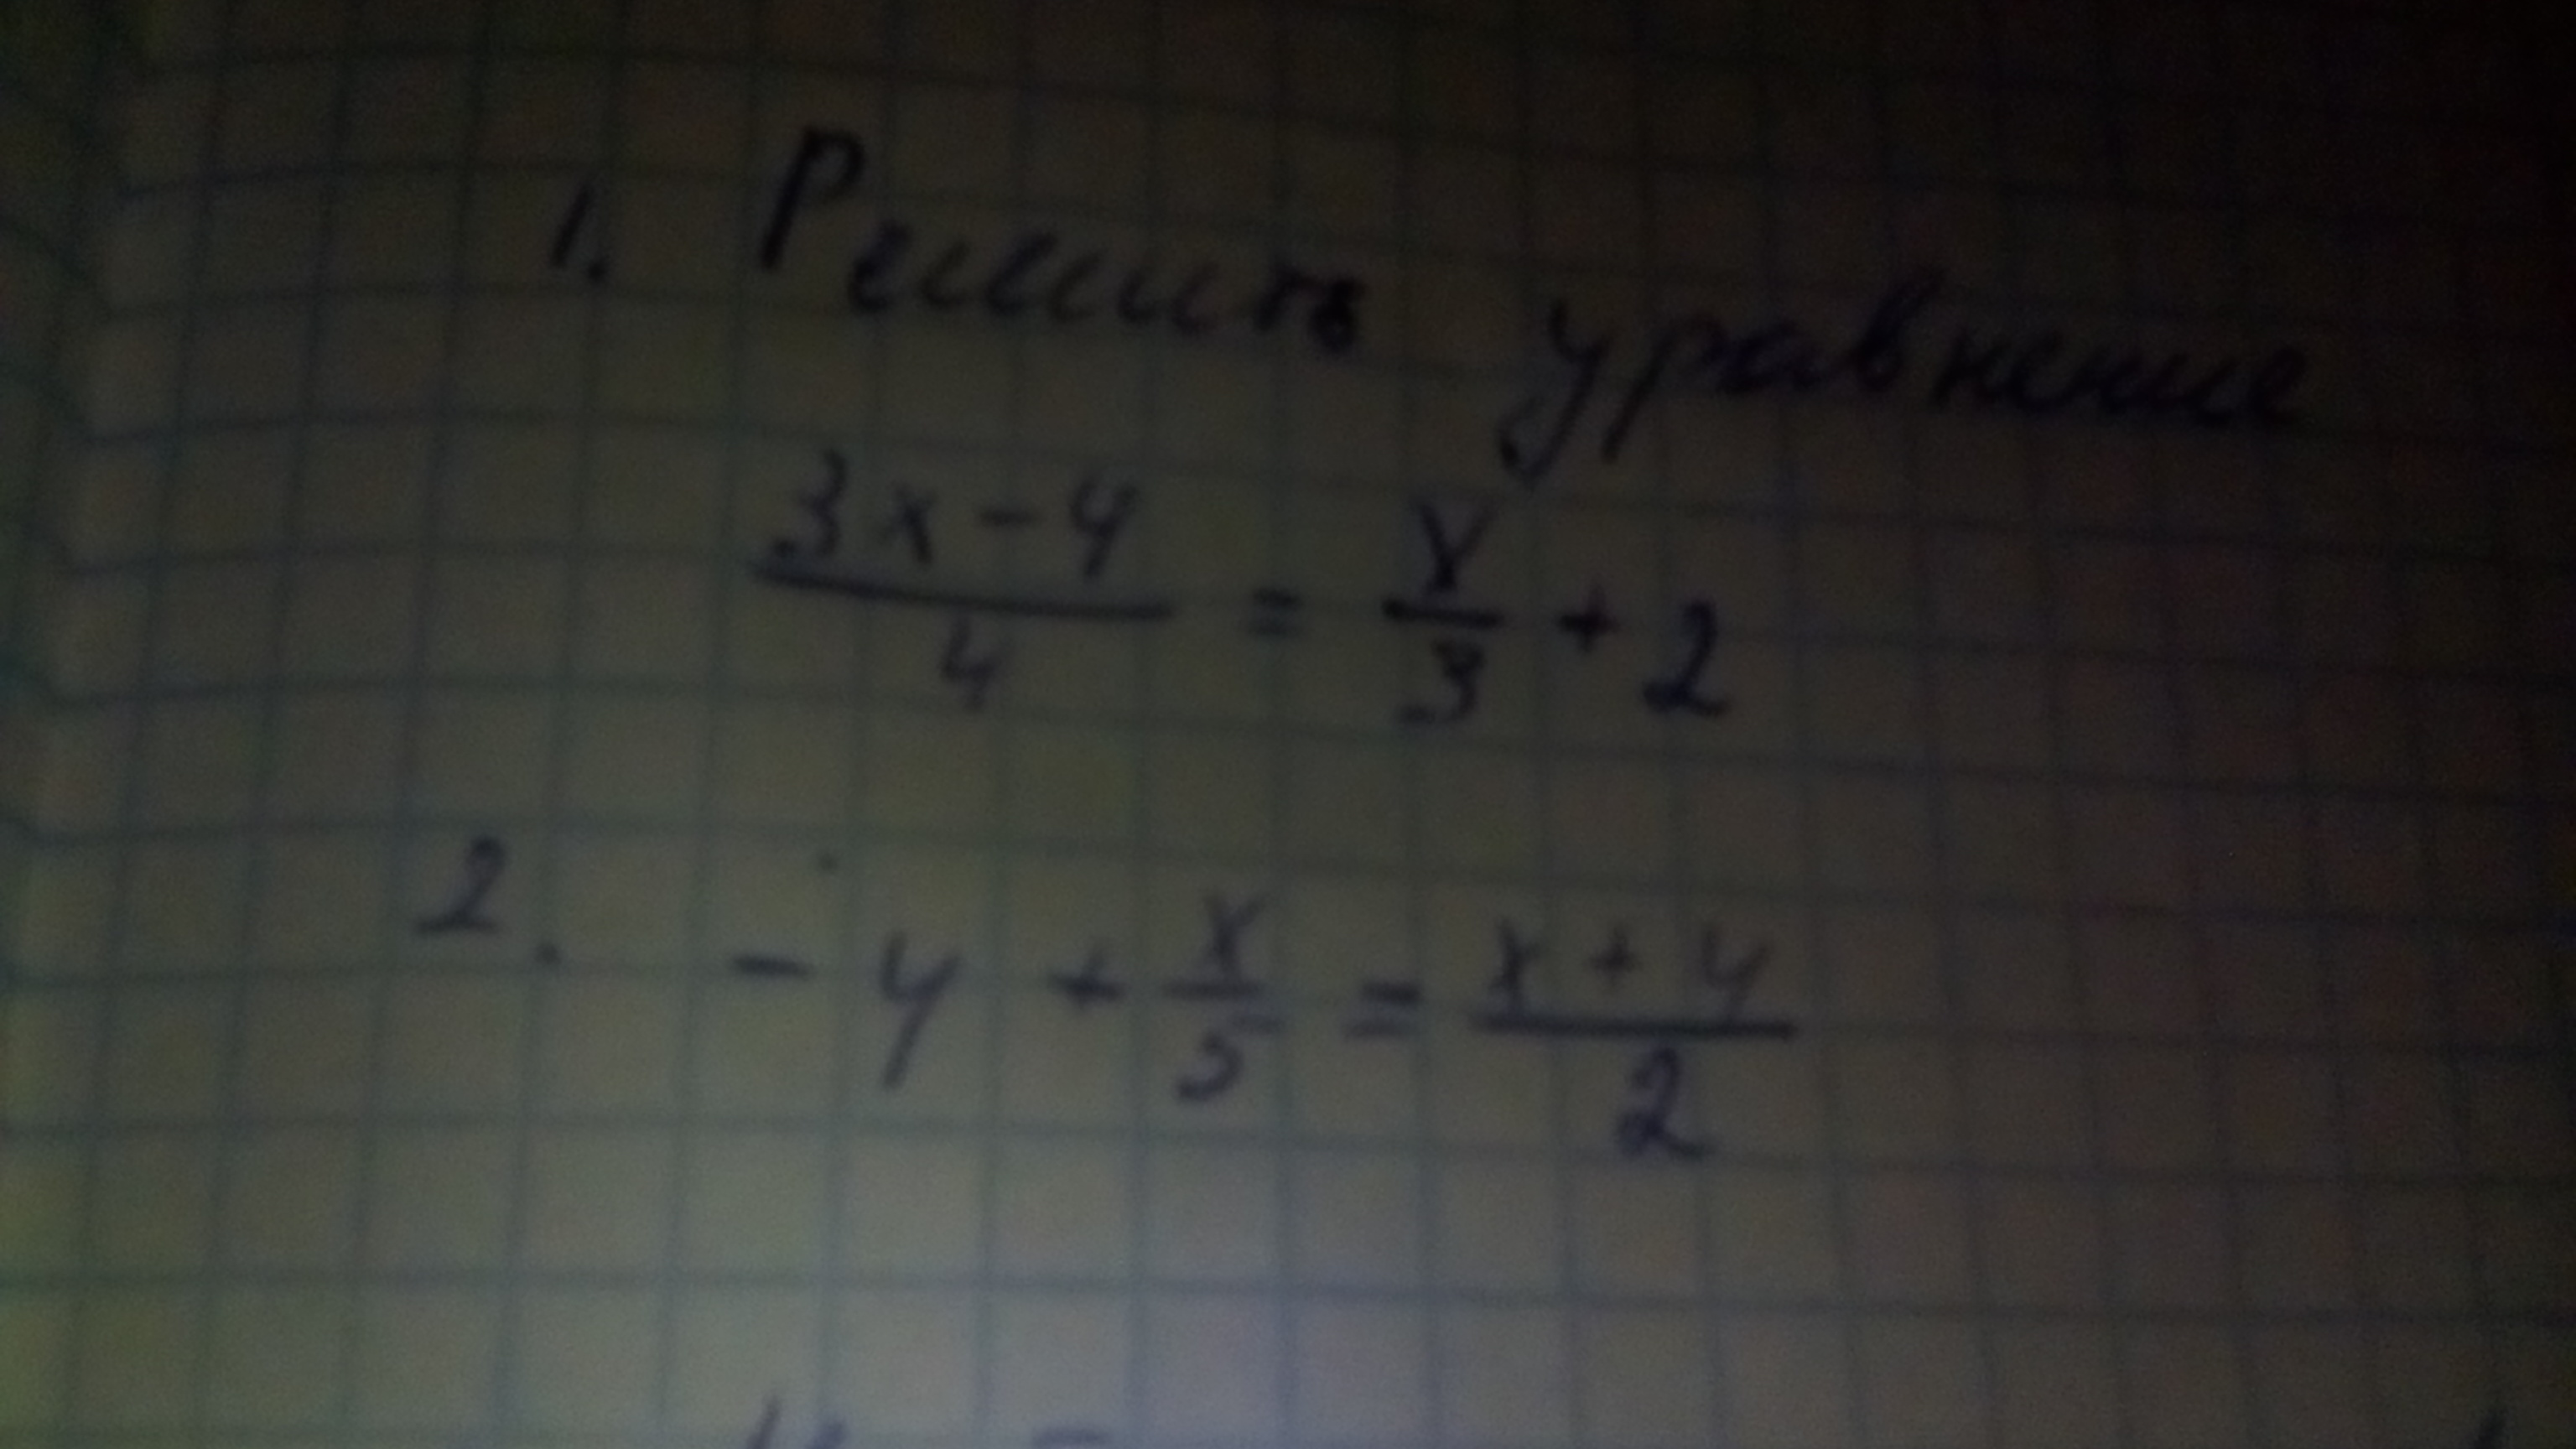 1. Решить уравнение
(3x - 4)/4 = x/3 + 2
2. - 4 + x/5 = (x + 4)/2